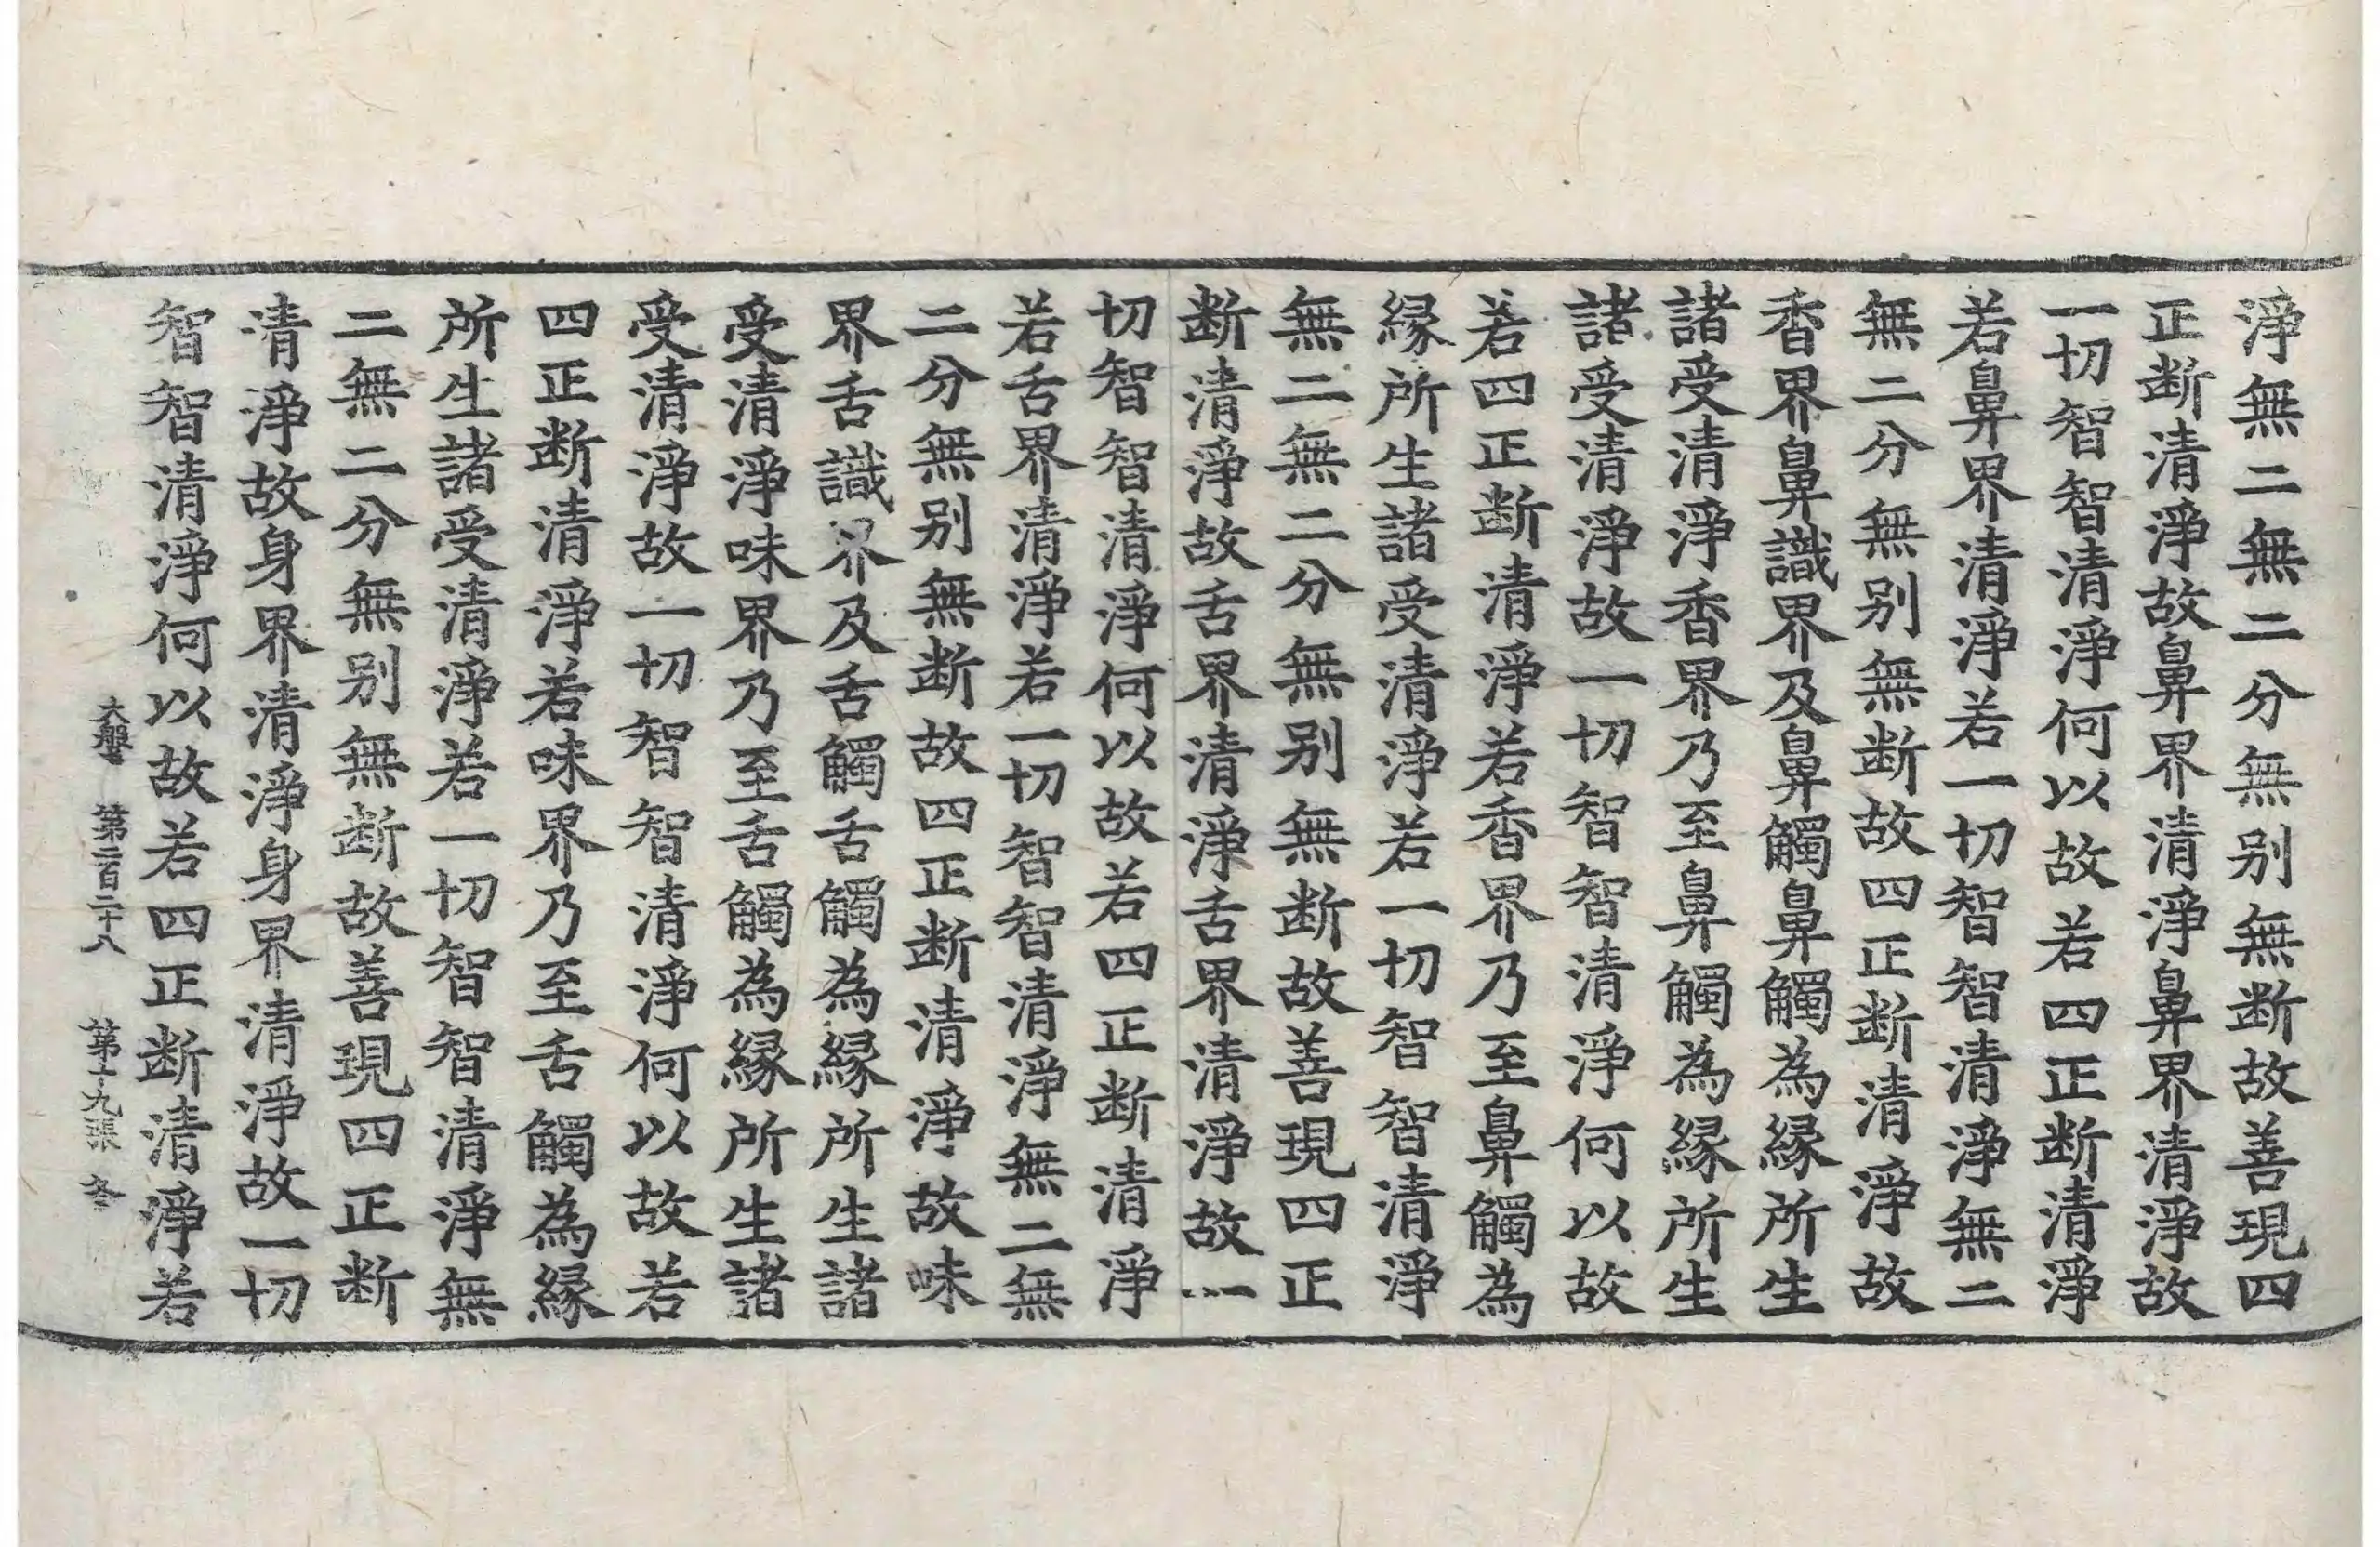 淨無二無二分無别無断故善現四
正断清淨故鼻界清淨鼻界清淨故
一切智智清淨何以故若四正断清淨
若鼻界清淨若一切智智清淨無二
無二分無别無断故四正断清淨故
香界鼻識界及鼻觸鼻觸為縁所生
諸受清淨香界乃至鼻觸為縁所生
諸受清淨故一切智智清淨何以故
若四正断清淨若香界乃至鼻觸為
縁所生諸受清淨若一切智智清淨
無二無二分無别無断故善現四正
断清淨故舌界清淨舌界清淨故一
切智智清淨何以故若四正断清淨
若舌界清淨若一切智智清淨無二無
二分無别無断故四正断清淨故味
界舌識界及舌觸舌觸為縁所生諸
受清淨味界乃至舌觸為縁所生諸
受清淨故一切智智清淨何以故若
四正断清淨若味界乃至舌觸為縁
所生諸受清淨若一切智智清淨無
二無二分無别無断故善現四正断
清淨故身界清淨身界清淨故一切
智智清淨何以故若四正断清淨若
大般 第二百二十八 第十九張 冬